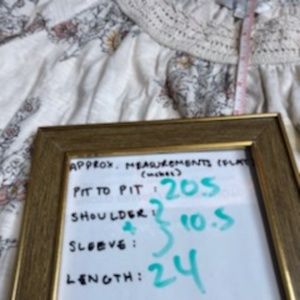 APPROX. MEASUREMENTS (FLAT
(inches)
PIT TO PIT : 20.5
SHOULDER :
+ } 10.5
SLEEVE :
LENGTH : 24